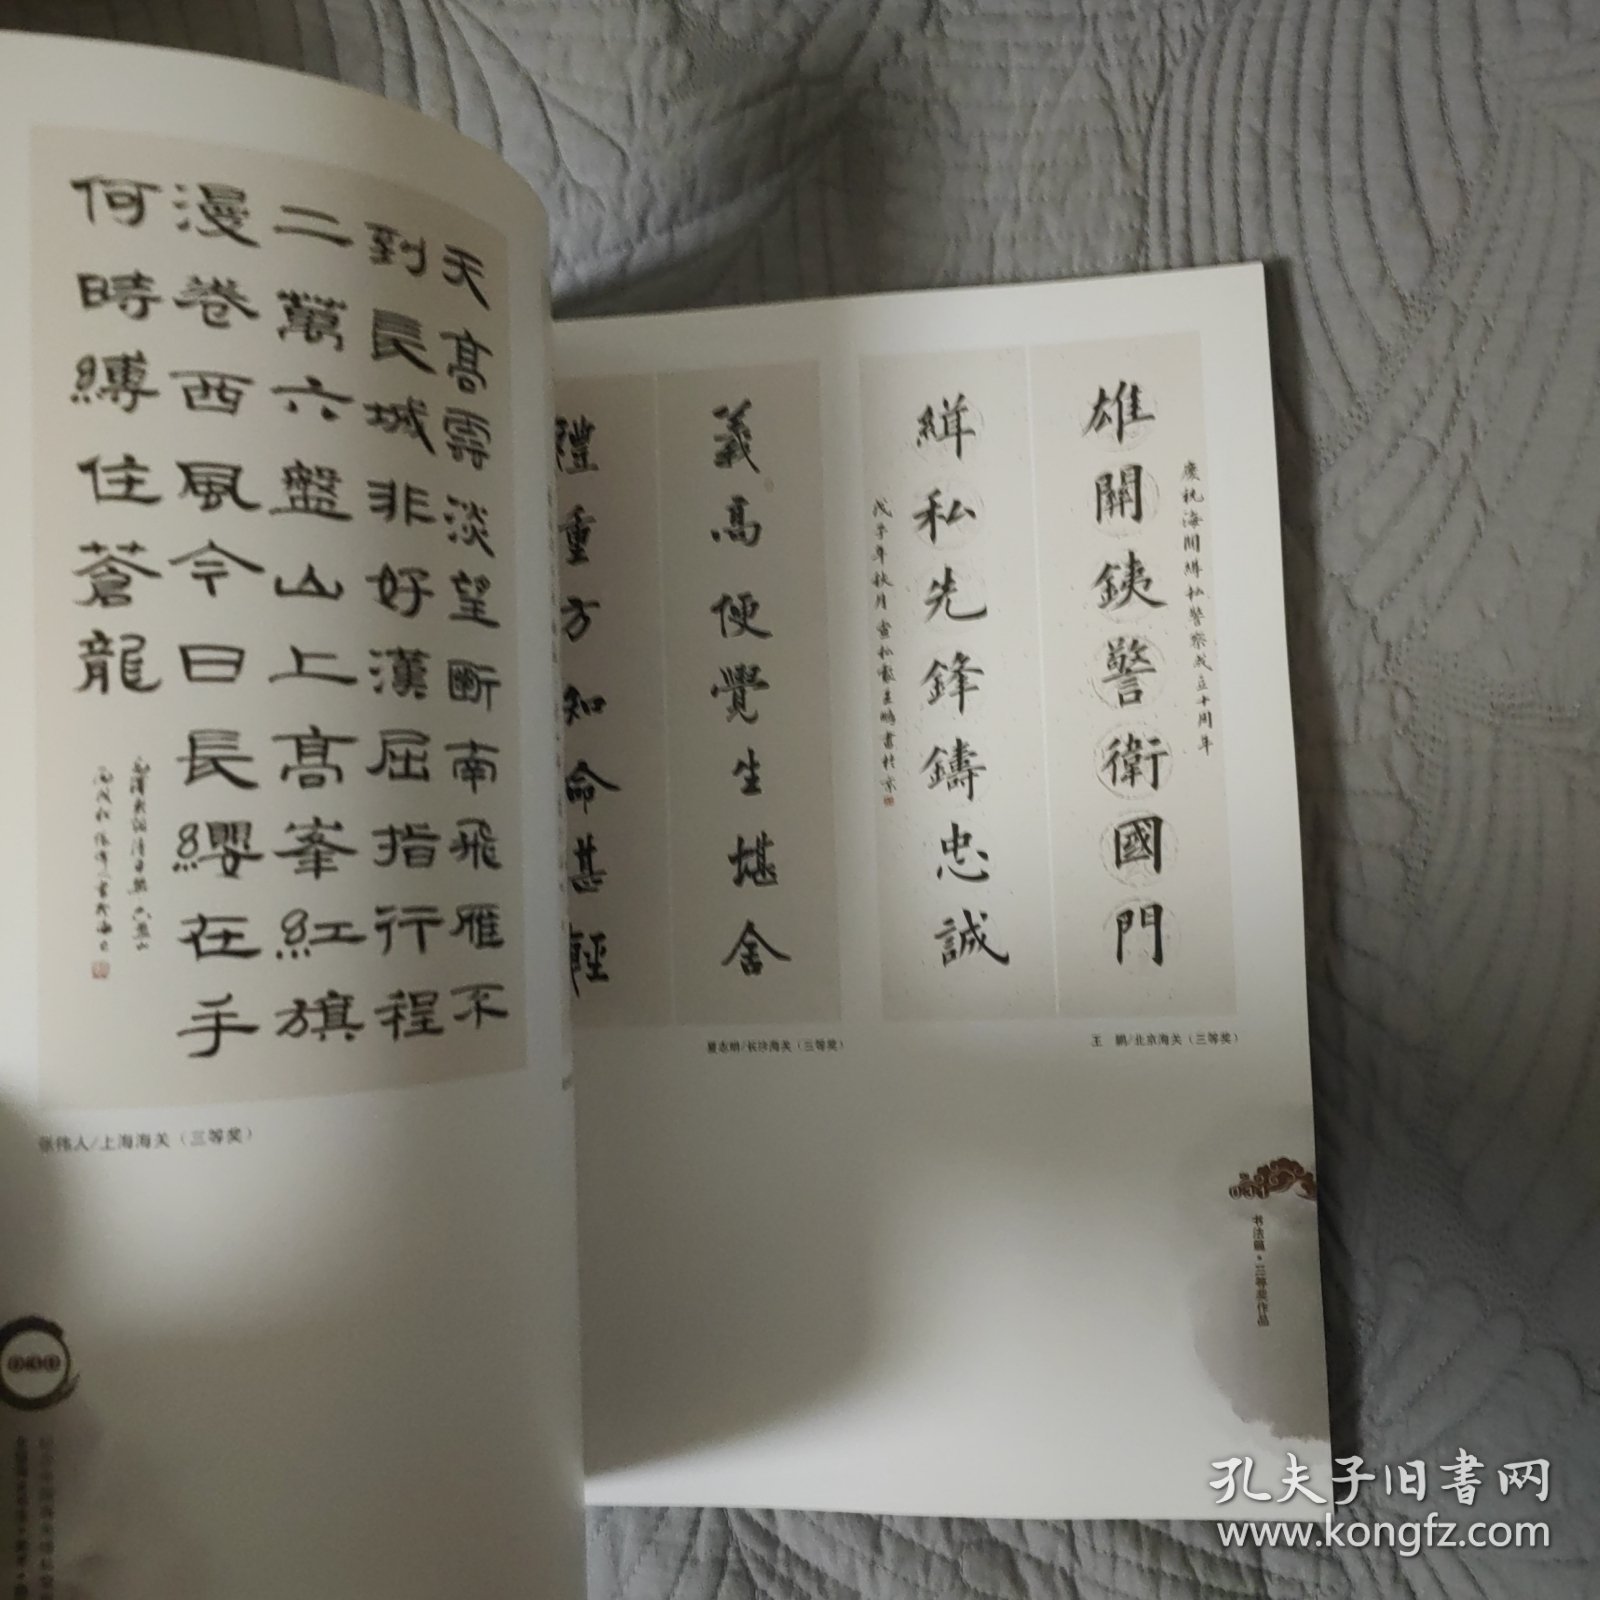 天高雲淡望斷南飛雁不
到長城非好漢屈指行程
二萬六盤山上高峯紅旗
漫卷西風今日長纓在手
何時縛住蒼龍
张伟人/上海海关（三等奖）
慶祝海關緝私警察成立十周年
雄關鐵警衛國門
緝私先鋒鑄忠誠
戊子年秋月
王鹏/北京海关（三等奖）
義高便覺生堪舍
禮重方知命甚輕
夏志明/长沙海关（三等奖）
031
书法篇·三等奖作品
孔夫子旧书网
www.kongfz.com